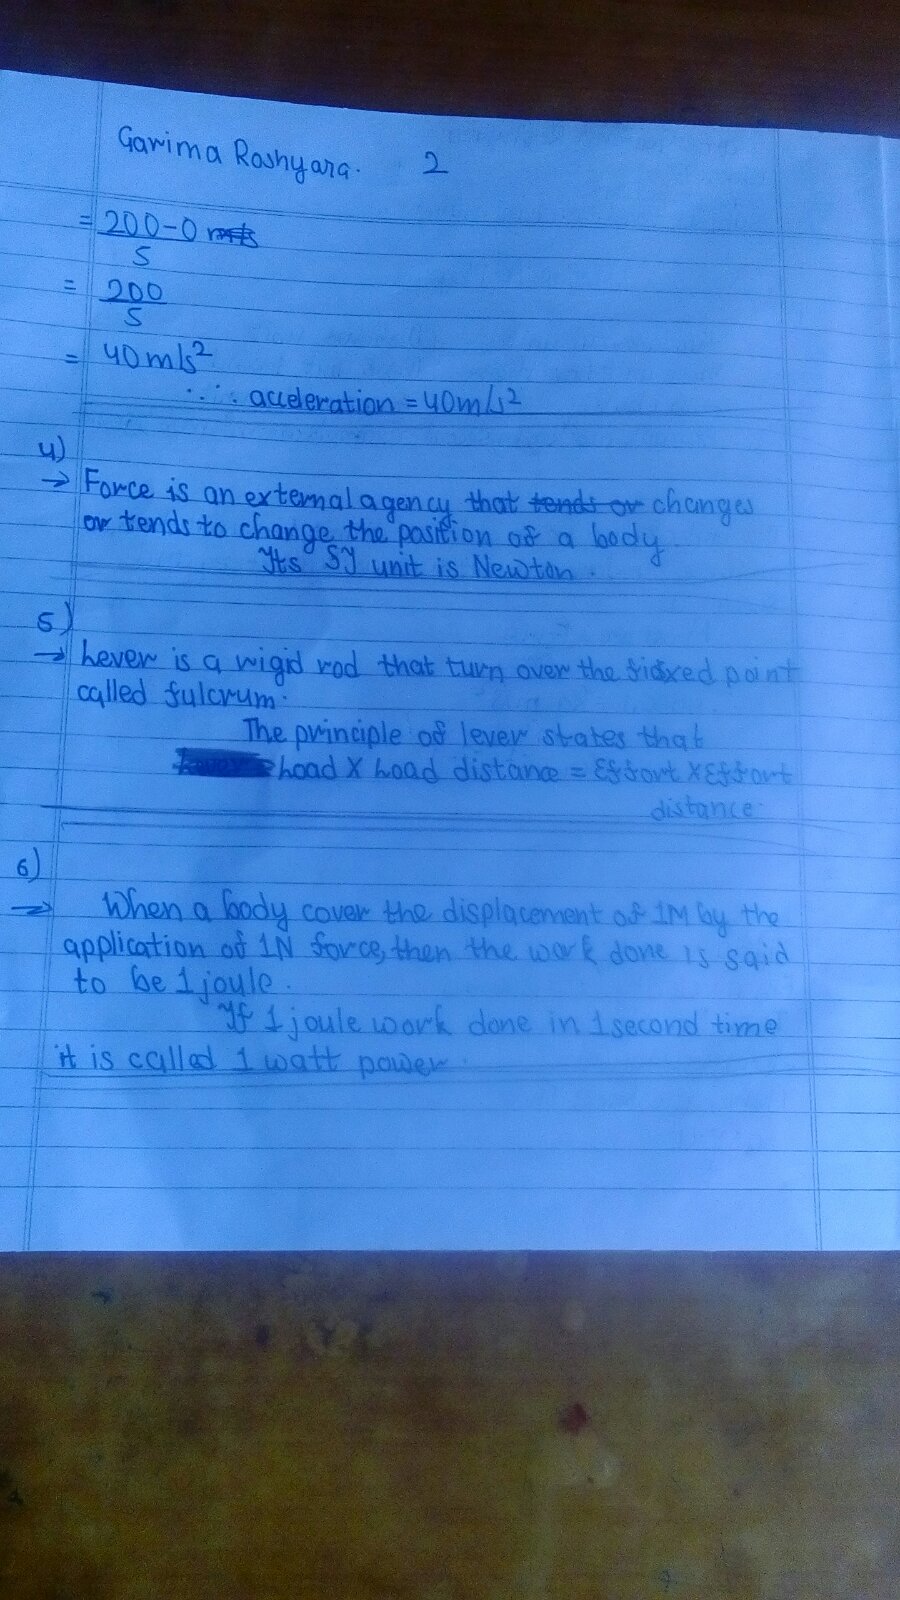 Garima Rashyara. 2
= 200-0
5
= 200
5
= 40m/s²
∴ acceleration = 40m/s²
4)
→ Force is an external agency that tends or changes
or tends to change the position of a body.
Its SI unit is Newton.
5)
→ Lever is a rigid rod that turn over the fixed point
called fulcrum.
The principle of lever states that
Load X Load distance = Effort X Effort
distance.
6)
→ When a body cover the displacement of 1M by the
application of 1N force, then the work done is said
to be 1 joule.
If 1 joule work done in 1 second time
it is called 1 watt power.